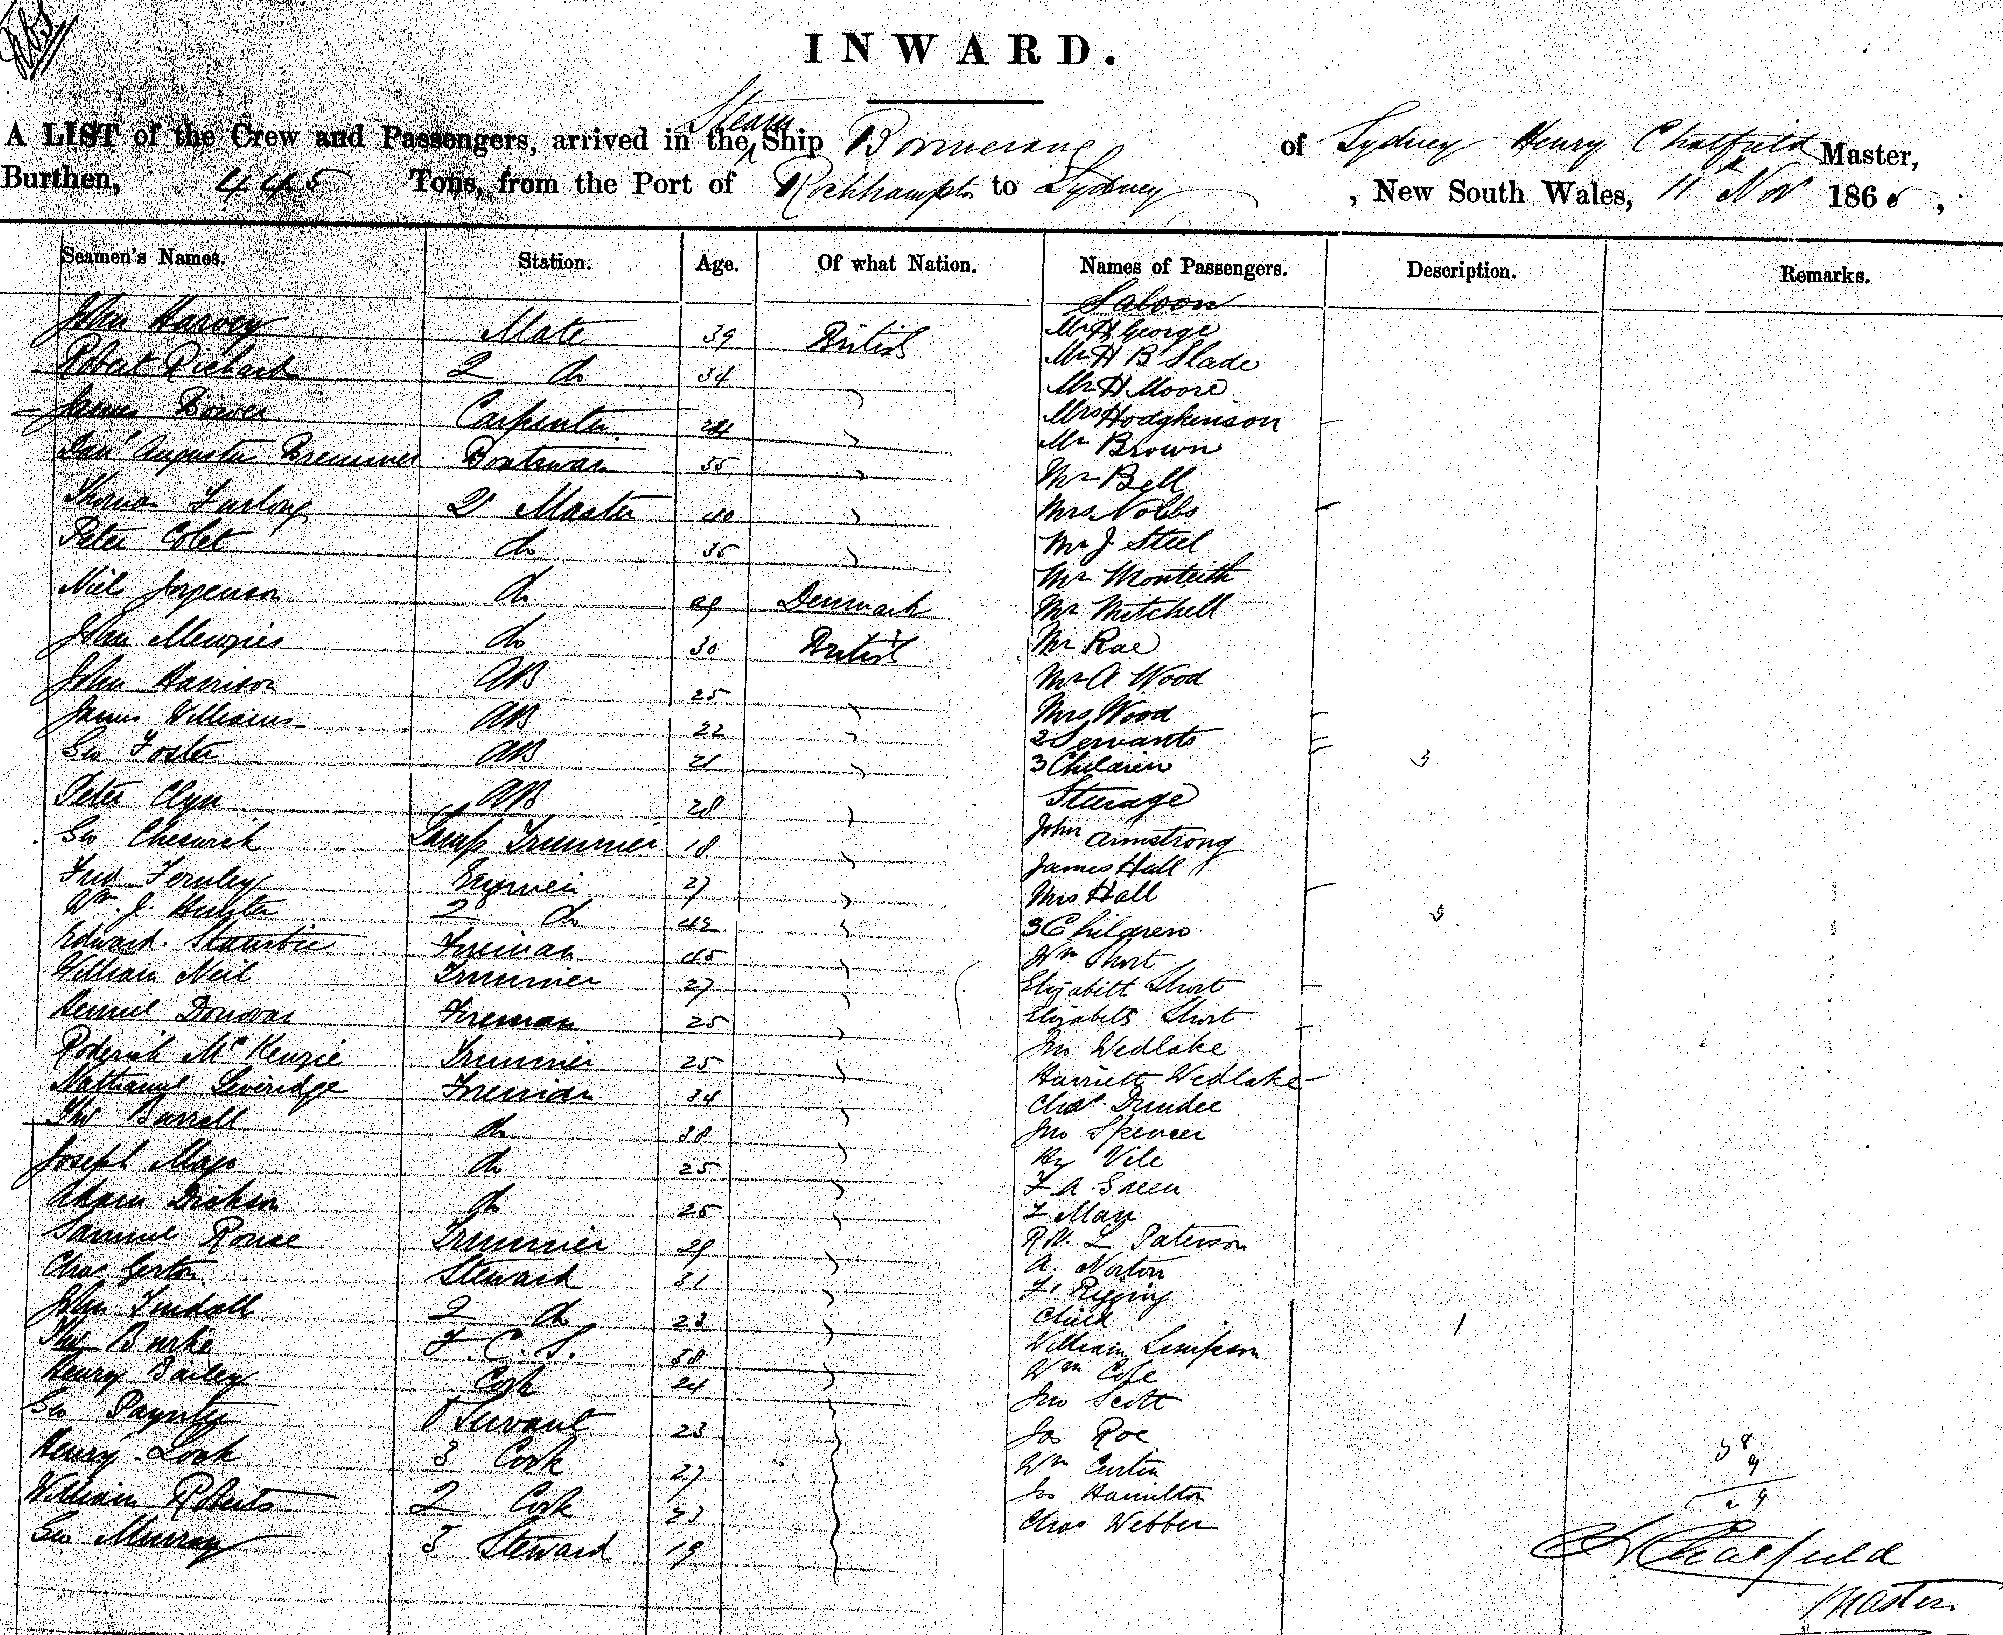 INWARD.
A LIST of the Crew and Passengers, arrived in the Steam Ship Boomerang of Sydney Henry Chatfield Master,
Burthen, 445 Tons, from the Port of Rockhampton to Sydney, New South Wales, 11 Nov 186
Seamen's Names. Station. Age. Of what Nation. Names of Passengers. Description. Remarks.
Saloon
John Harvey Mate 39 British Mr H George
Robert 2 do 34 Mr H B Slade
Mr H Moore
James Bower Carpenter 24 Mrs Hodgkinson
Augustus Bremmer Boatswain 35 Mr Brown
Mr Bell
Thomas Furlong Qr Master 40 Mrs Nobbs
Peter Colet do 35 Mr J Steel
Mr Monteith
Niel Jorgenson do 29 Denmark Mr Mitchell
John Menzies do 30 British Mr Rae
John Harrison AB 25 Mr A Wood
James Williams AB 22 Mrs Wood
2 Servants
Geo Foster AB 21 3 Children 3
Peter Clyn AB 28 Steerage
Geo Cheswick Lamp Trimmer 18 John Armstrong
James Hall
Fred Fernley Engineer 27 Mrs Hall
Wm J. Hunter 2 do 42 3 Children 3
Edward Fireman 45 Wm Short
William Neil Trimmer 27 Elizabeth Short
Daniel Donovan Fireman 25 Elizabeth Short
Roderick McKenzie Trimmer 25 Jno Wedlake
Harriett Wedlake
Nathanyl Leviridge Fireman 34 Chas Dundee
Thos Burrell do 38 Jno Spencer
Hy Vile
Joseph Mays do 25 F A
Adam Dickson do 25 F May
Samuel Rouse Trimmer 29 R. L Paterson
Chas Gorton Steward 31 A. Norton
F.
John Tindall 2 do 23 Child 1
Thos Burke F. C. S. 38 William Simpson
Henry Bailey Cook 24 Wm Cope
Jno Scott
Geo Paynter Servant 23 Jas Roe
Henry Look 3 Cook 27 Wm Curtin
William Roberts 2 Cook 23 Jas Hamilton
Geo Murray 3 Steward 19 Chas Webber
H Chatfield
Master